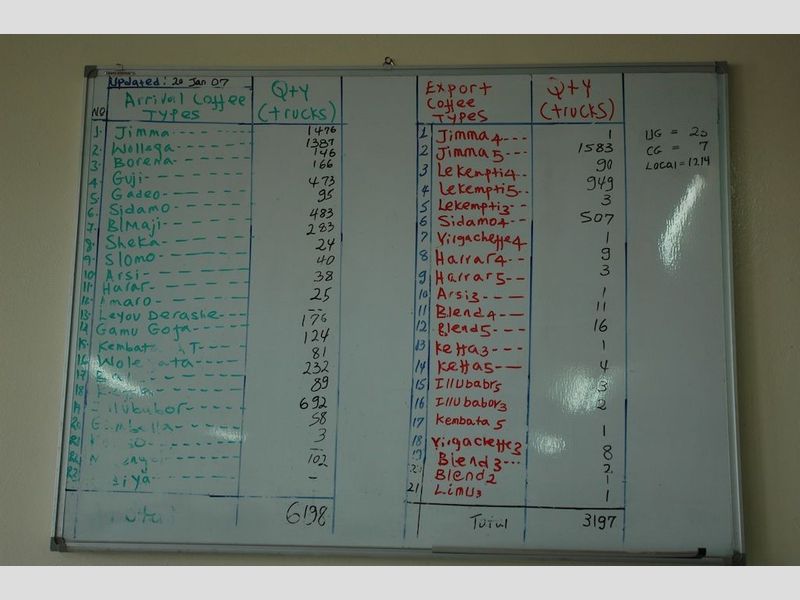 Updated: 20 Jan 07
NO Arrival Coffee TYPES Q+Y (trucks)
1. Jimma 1476
2. Wollega 1387
3. Borena 146
4. Guji 166
5. Gadeo 473
6. Sidamo 95
7. B/Maji 483
8. Sheka 283
9. S/omo 24
10 Arsi 40
11 Harar 38
12 Amaro 25
13. Leyou Derashe --
14 Gamu Gofa 176
15. Kembat T 124
16 Wole ata 81
17 232
18 89
19 Illubabor 692
20 Gambella 58
21 3
22 --
23 102
-
6198
Export Coffee TYPES Q+Y (trucks)
1 Jimma 4 1
2 Jimma 5 1583
3 Lekempti 4 90
4 Lekempti 5 949
5 Lekempti 3 3
6 Sidamo 4 507
7 Yirgacheffe 4 1
8 Harrar 4 9
9 Harrar 5 3
10 Arsi 3 1
11 Blend 4 11
12 Blend 5 16
13 Keffa 3 1
14 Keffa 5 4
15 Illubabr 5 3
16 Illubabor 3 2
17 Kembata 5 1
18 Yirgacheffe 3 8
19 Blend 3 2
20 Blend 2 1
21 Limu 3 1
Total 3197
UG = 25
CG = 7
Local = 1214